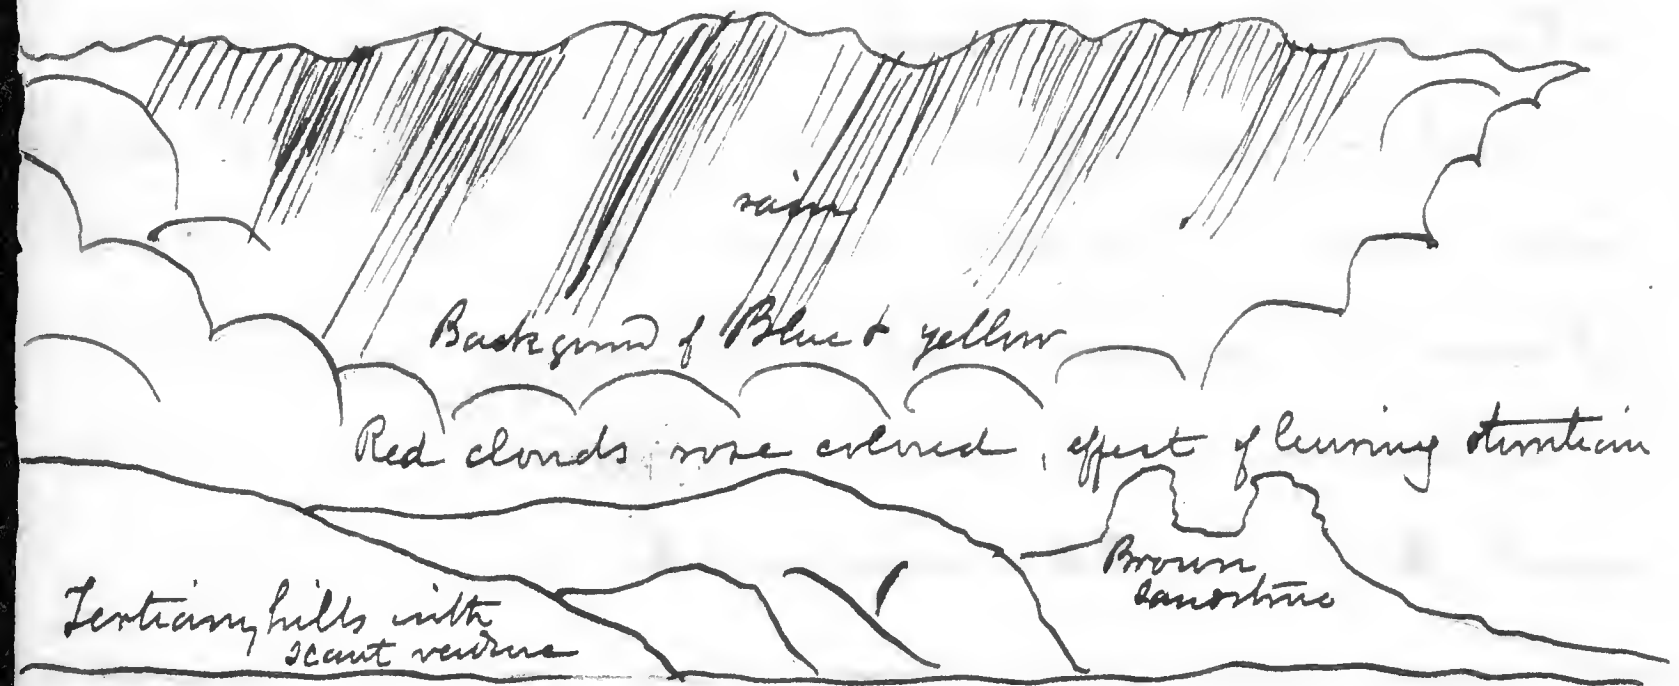 rain
Background of Blue & yellow
Red clouds, rose colored, effect of burning strontium
Brown
sandstone
Tertiary hills with
scant verdure